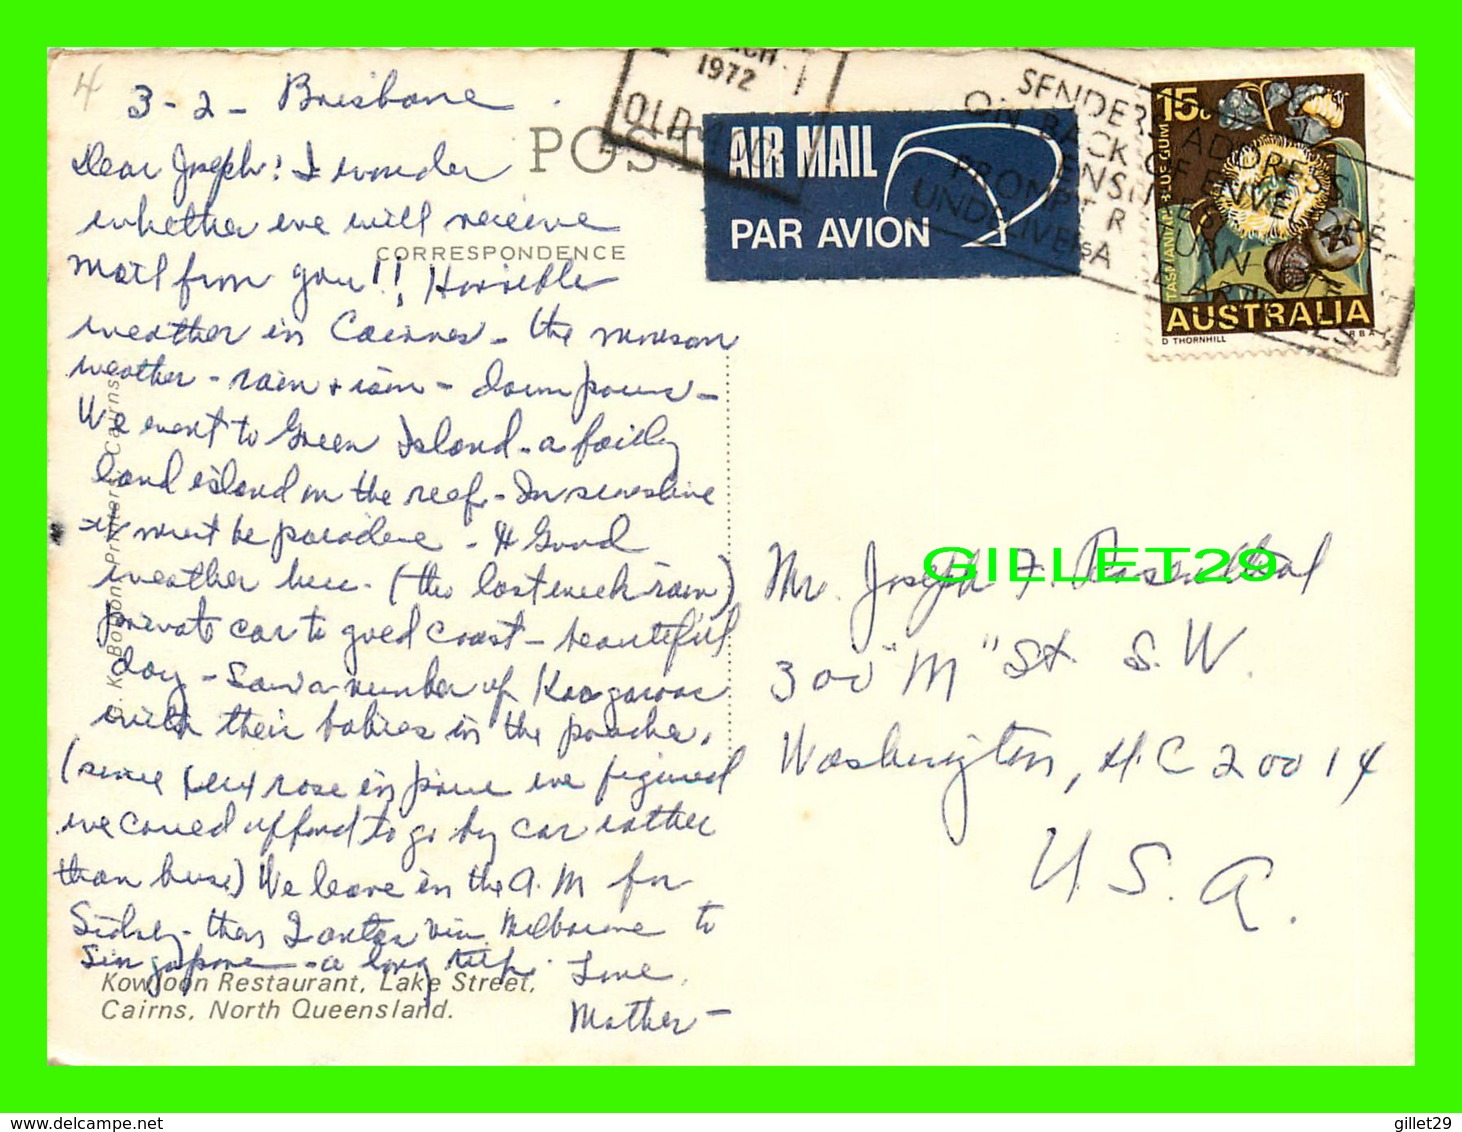 4
3-2- Brisbane
Dear Joseph! I wonder
whether we will receive
mail from you!! Horrible
weather in Cairnes - the monsoon
weather - rain + rain - down pours -
We went to Green Island - a fairly
land island on the reef - In sunshine
it must be paradise - Good
weather here - (the last week rain)
private car to gold coast - beautiful
day - Saw a number of Kangaroos
with their babies in the pouches.
(since rose in price we figured
we could afford to go by car rather
than buse) We leave in the A.M for
Sidney - then via Melbourne to
Singapore - a long trip. Love,
Mother -
POST
CORRESPONDENCE
Kowloon Restaurant, Lake Street,
Cairns, North Queensland.
Printers, Cairns
1972
QLD-4
AIR MAIL
PAR AVION
SENDER'S ADDRESS
ON BACK OF ENVELOPE
ENSURES
PROMPT RETURN OF
UNDELIVERABLE ARTICLES
15c
TASMANIAN BLUE GUM
AUSTRALIA
D THORNHILL
RBA
GILLET29
Mr. Joseph F. Rosenthal
300 "M" St S.W.
Washington, D.C 20014
U.S.A.
https://www.delcampe.net
gillet29